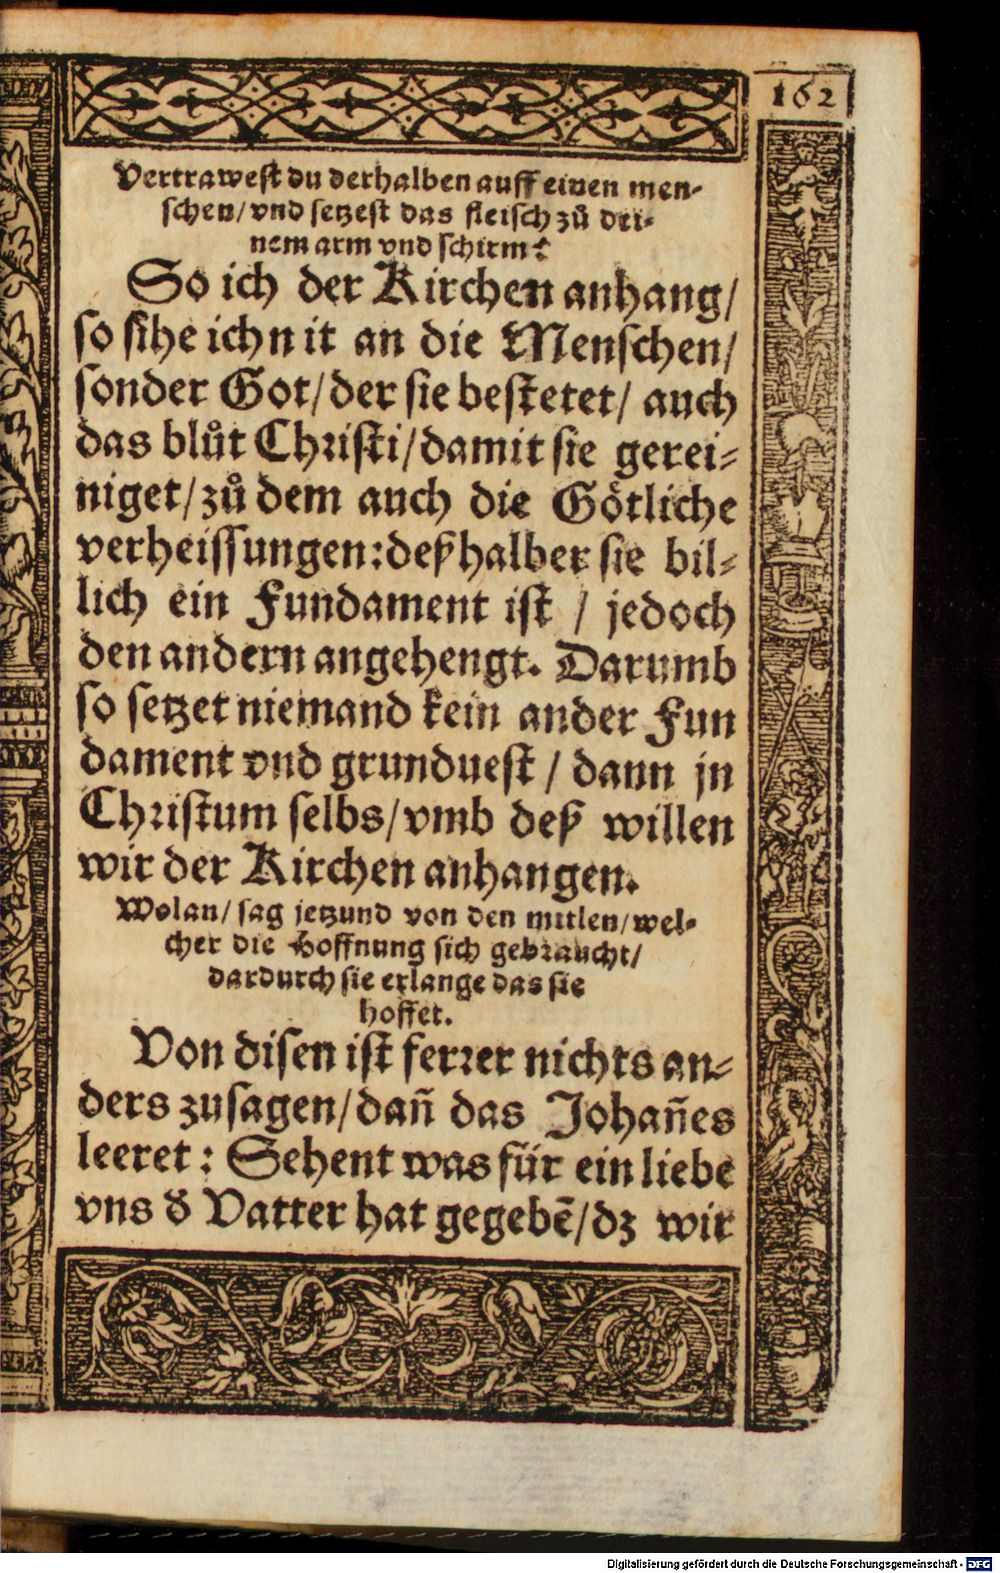 162
Vertrawest du derhalben auff einen men-
schen/ vnd setzest das fleisch zů dei-
nem arm vnd schirm?
So ich der Kirchen anhang/
so sihe ich nit an die Menschen/
sonder Got/ der sie bestetet/ auch
das blůt Christi/ damit sie gerei-
niget/ zů dem auch die Götliche
verheissungen: deßhalber sie bil-
lich ein Fundament ist / jedoch
den andern angehengt. Darumb
so setzet niemand kein ander Fun
dament vnd grunduest / dann jn
Christum selbs/ vmb deß willen
wir der Kirchen anhangen.
Wolan/ sag jetzund von den mitlen/ wel-
cher die Hoffnung sich gebraucht/
dardurch sie erlange das sie
hoffet.
Von disen ist ferrer nichts an-
ders zusagen/ dañ das Johañes
leeret : Sehent was für ein liebe
vns d̕ Vatter hat gegebẽ/ dz wir
Digitalisierung gefördert durch die Deutsche Forschungsgemeinschaft - DFG